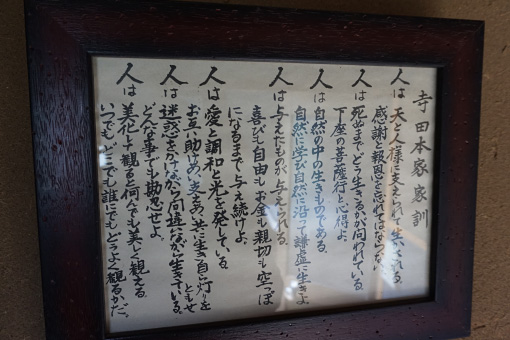 寺田本家家訓
人は天と人様に支えられて生かされる。
感謝と報恩を忘れてはならない
人は死ぬまでどう生きるかが問われている。
下座の菩薩行と心得よ
人は自然の中の生きものである。
自然に学び自然に沿って謙虚に生きよ
人は与えたものが与えられる。
喜びも自由もお金も親切も空っぽ
になるまで与え続けよ
人は愛と調和と光を発している。
お互い助けあい支えあい共に生き自ら灯りを
ともせ
人は迷惑をかけながら間違いながら生きている。
どんな事でも勘忍せよ
人は美化して観ると何んでも美しく観える
いつでもどこでも誰にでもどうよく観るかだ。